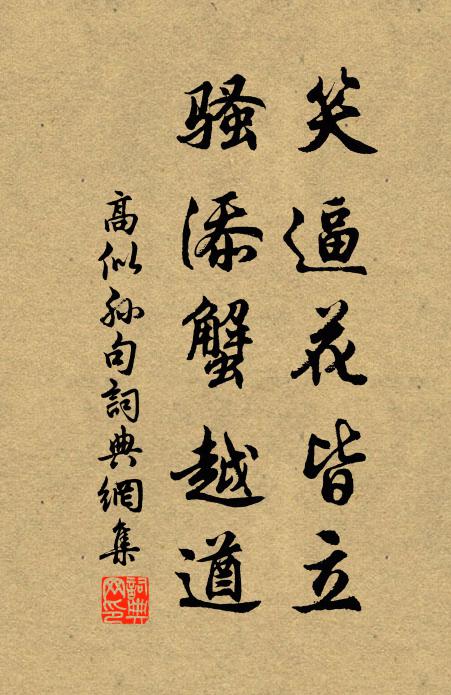 笑逼花皆立
骚添蟹越遒
高似孙句詞典網集
詞典网印